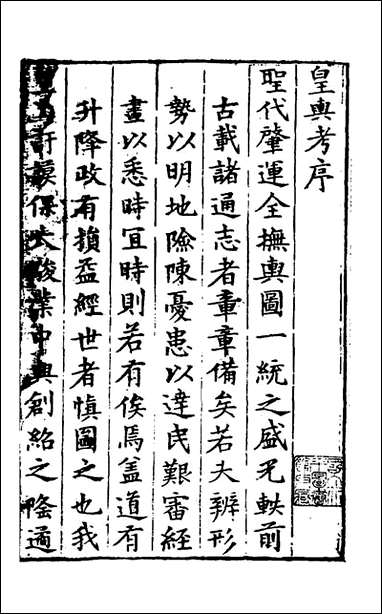 皇輿考序
聖代肇運全撫輿圖一統之盛旡軼前
古載諸通志者章章備矣若夫辨形
勢以明地險陳憂患以達民艱審經
畫以悉時宜時則若有俟焉盖道有
升降政有損益經世者慎圖之也我
訏謨保大駿業中興創紹之隆遹